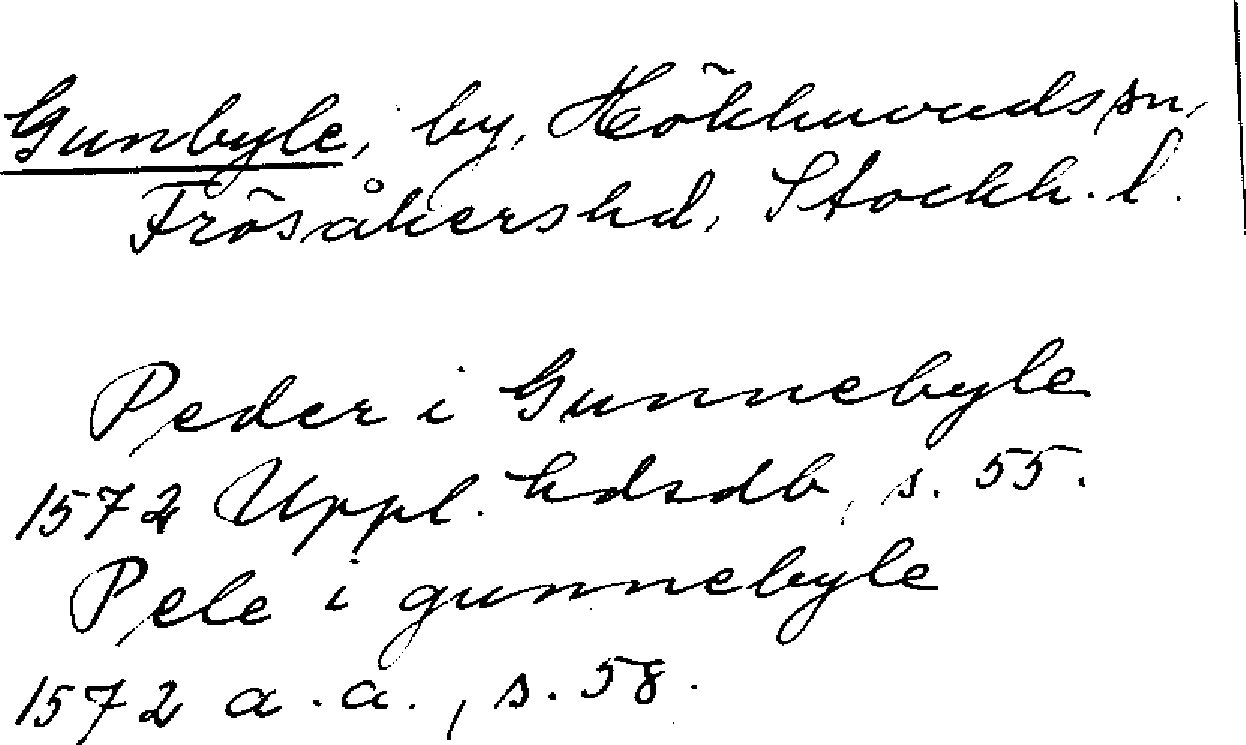 Gunbyle, by, Hökhuvuds sn,
Frösåkers hd, Stockh. l.
Peder i Gunnebyle
1572 Uppl. hdrdb, s. 55.
Pele i gunnebyle
1572 a.a., s. 58.